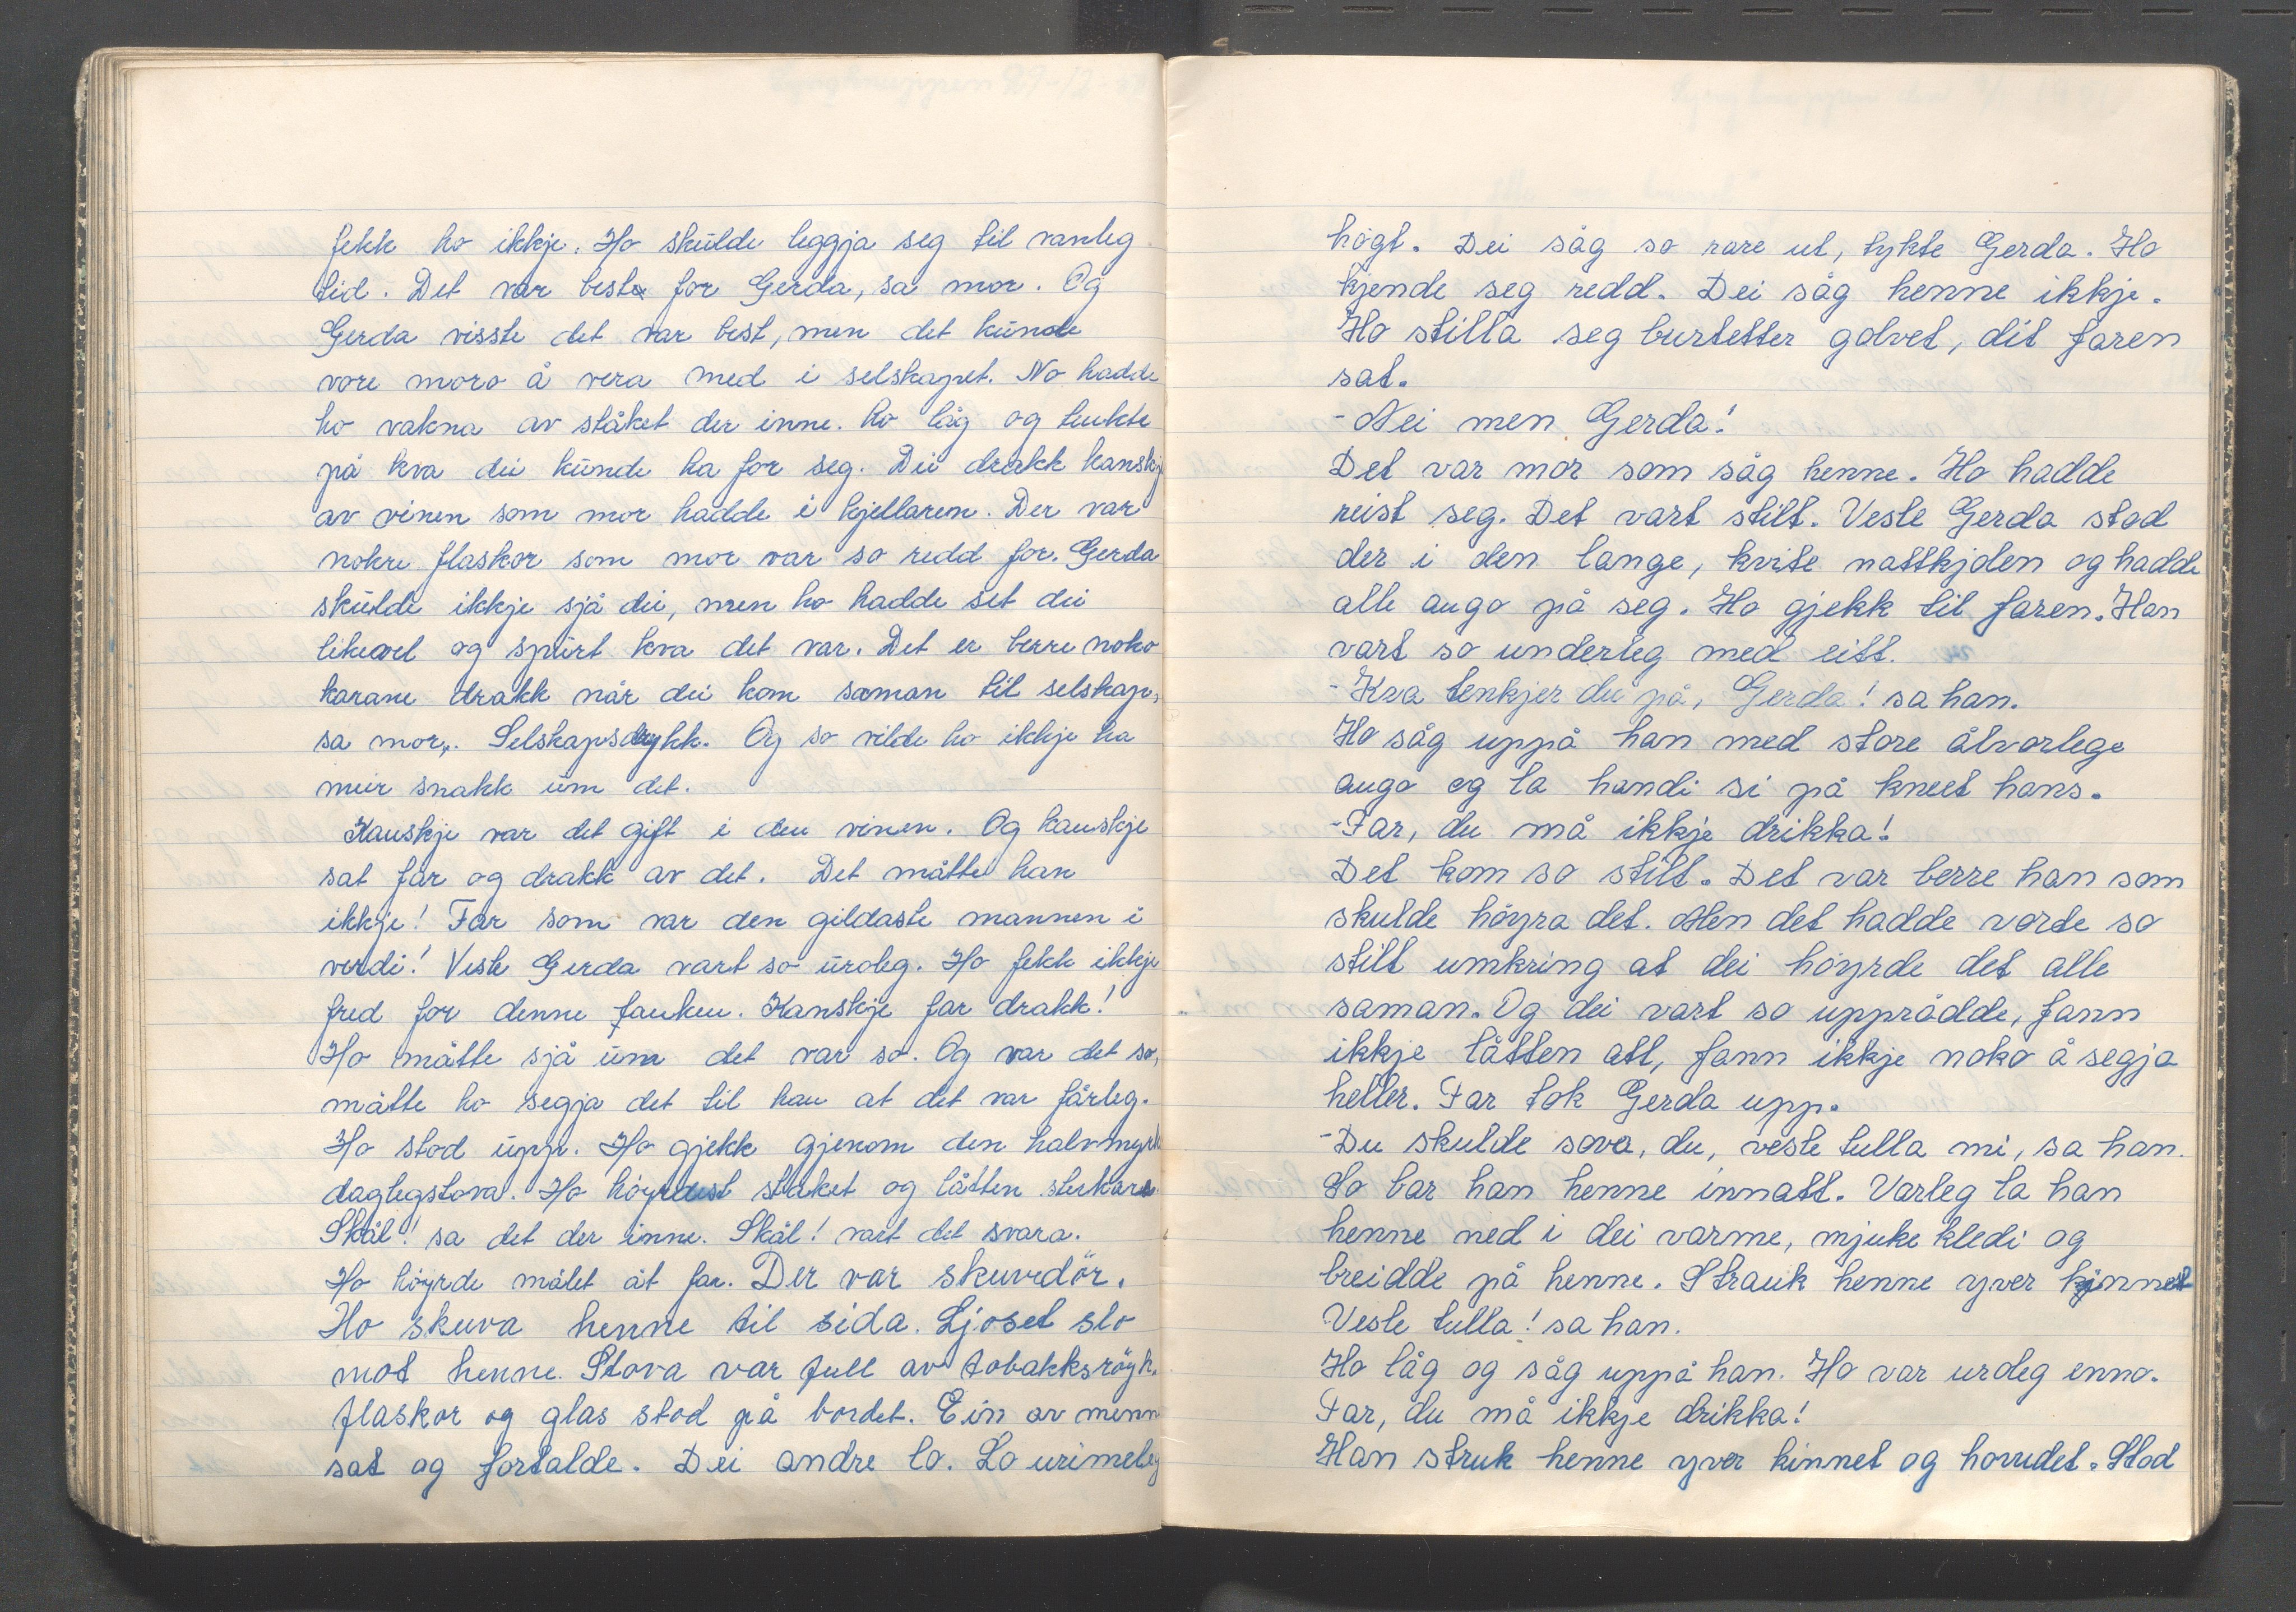 fekk ho ikkje. Ho skulde leggja seg til vanleg
tid. Det var best for Gerda, sa mor. Og
Gerda visste det var best, men det kunde
vore moro å vera med i selskapet. No hadde
ho vakna av ståket der inne. ho låg og tenkte
på kva dei kunde ha for seg. Dei drakk kanskj
av vinen som mor hadde i kjellaren. Der var
nokre flaskor som mor var so redd for. Gerda
skulde ikkje sjå dei, men ho hadde set dei
likevel og spurt kva det var. Det er berre noko
karane drakk når dei kom saman til selskap,
sa mor. Selskapsdrykk. Og so vilde ho ikkje ha
meir snakk um det.
Kanskje var det gift i den vinen. Og kanskje
sat far og drakk av det. Det måtte han
ikkje! Far som var den gildaste mannen i
verdi! Vesle Gerda vart so uroleg. Ho fekk ikkje
fred for denne tanken. Kanskje far drakk!
Ho måtte sjå um det var so. Og var det so,
måtte ho segja det til han at det var fårleg.
Ho stod upp. Ho gjekk gjenom den halvmyrk
daglegstova. Ho höyrde ståket og låtten sterkare
Skål! sa det der inne. Skål! vart det svara.
Ho höyrde målet åt far. Der var skuvdör.
Ho skuva henne til sida. Ljoset slo
mot henne. Stova var full av tobakksröyk.
flaskor og glas stod på bordet. Ein av menn
sat og fortalde. Dei andre lo. Lo urimeleg
högt. Dei såg so rare ut, tykte Gerda. Ho
kjende seg redd. Dei såg henne ikkje.
Ho stilla seg burtetter golvet, dit faren
sat.
- Nei men Gerda!
Det var mor som såg henne. Ho hadde
reist seg. Det vart stilt. Vesle Gerda stod
der i den lange, kvite nattkjolen og hadde
alle augo på seg. Ho gjekk til faren. Han
vart so underleg med eitt.
- Kva tenkjer du på, Gerda! sa han.
Ho såg uppå han med store ålvorlege
augo og la handi si på kneet hans.
- Far, du må ikkje drikka!
Det kom so stilt. Det var berre han som
skulde höyra det. Men det hadde vorte so
stilt umkring at dei höyrde det alle
saman. Og dei vart so upprådde, fann
ikkje låtten att, fann ikkje noko å segja
heller. Far tok Gerda upp.
- Du skulde sova, du, vesle tulla mi, sa han.
So bar han henne innatt. Varleg la han
henne ned i dei varme, mjuke kledi og
breidde på henne. Strauk henne yver kinnet
Vesle tulla! sa han.
Ho låg og såg uppå han. Ho var uroleg enno.
Far, du må ikkje drikka!
Han struk henne yver kinnet og hovudet. Stod